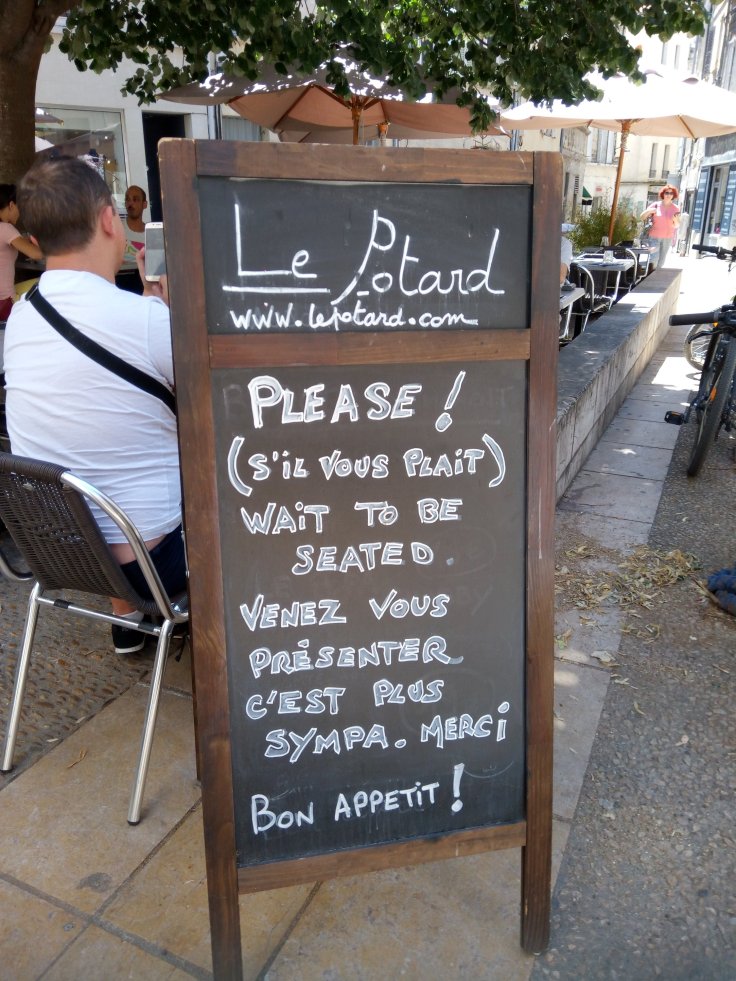 Le Potard
www.lepotard.com
PLEASE!
(S'IL VOUS PLAIT)
WAIT TO BE
SEATED.
VENEZ VOUS
PRÉSENTER
C'EST PLUS
SYMPA. MERCI
BON APPETIT!